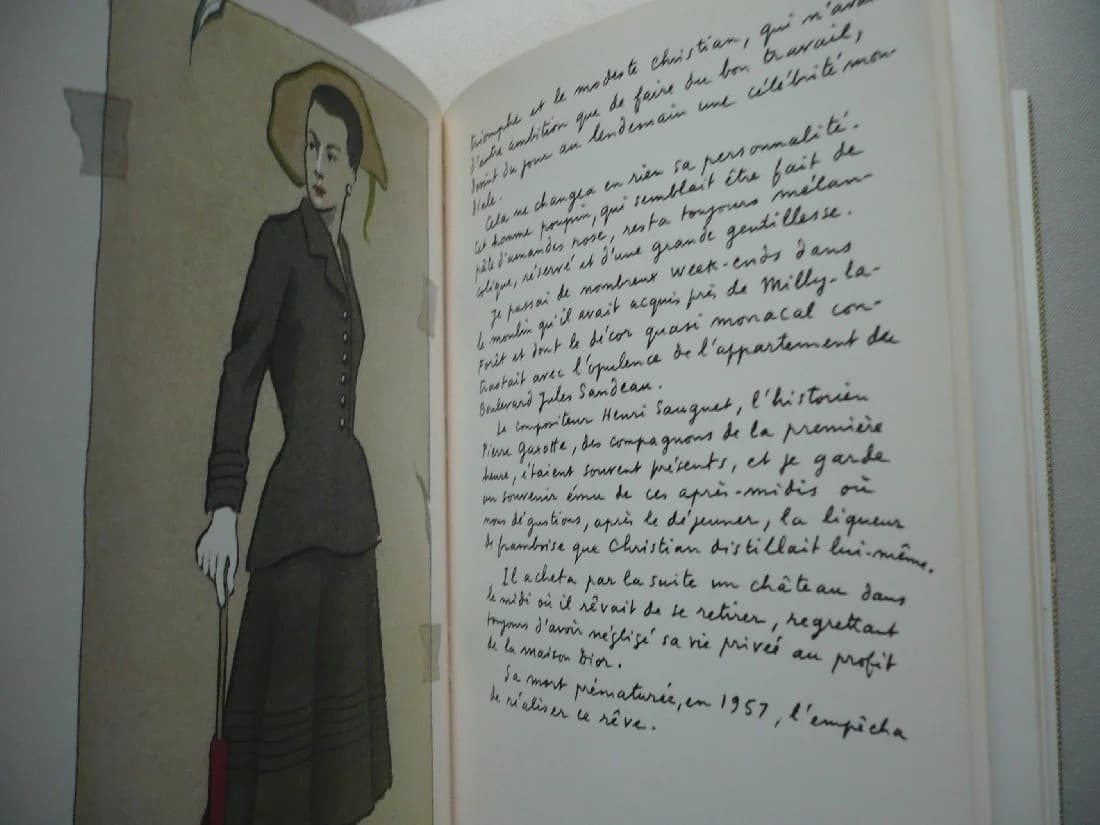 triomphe et le modeste Christian, qui n'avait
d'autre ambition que de faire du bon travail,
devint du jour au lendemain une célébrité mon-
diale.
Cela ne changea en rien sa personnalité.
Cet homme poupin, qui semblait être fait de
pâte d'amandes rose, resta toujours mélan-
colique, réservé et d'une grande gentillesse.
Je passai de nombreux week-ends dans
le moulin qu'il avait acquis près de Milly-la-
Forêt et dont le décor quasi monacal con-
trastait avec l'opulence de l'appartement du
Boulevard Jules Sandeau.
Le compositeur Henri Sauguet, l'historien
Pierre Gaxotte, des compagnons de la première
heure, étaient souvent présents, et je garde
un souvenir ému de ces après-midis où
nous dégustions, après le déjeuner, la liqueur
de framboise que Christian distillait lui-même.
Il acheta par la suite un château dans
le midi où il rêvait de se retirer, regrettant
toujours d'avoir négligé sa vie privée au profit
de la maison Dior.
Sa mort prématurée, en 1957, l'empêcha
de réaliser ce rêve.